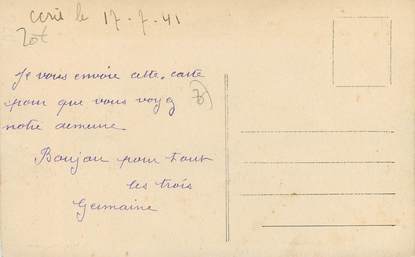 écrit le 17-7-41
Je vous envoie cette carte
pour que vous voyez
notre demeure
Bonjour pour tout
les trois
Germaine